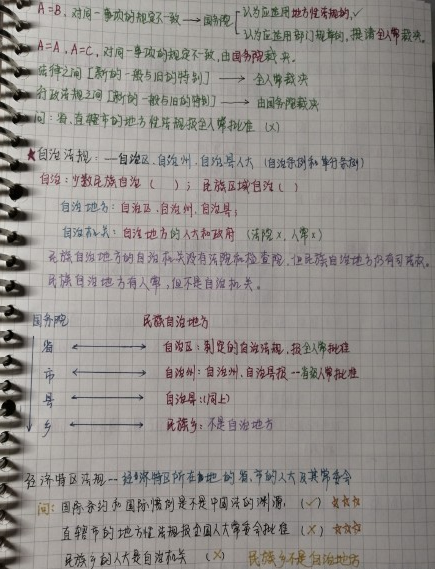 A=B,对同一事项的规定不一致→国务院[认为应适用地方性法规的,✓
认为应适用部门规章的,提请全人常裁决。
A=A,A=C,对同一事项的规定不一致,由国务院裁决。
法律之间[新的一般与旧的特别]→全人常裁决
行政法规之间[新的一般与旧的特别]→由国务院裁决
问:省、直辖市的地方性法规报全人常批准(X)
★自治法规:—自治区、自治州、自治县人大(自治条例和单行条例)
自治:少数民族自治( );民族区域自治( )
自治地方:自治区、自治州、自治县;
自治机关:自治地方的人大和政府(法院X、人常X)
民族自治地方的自治机关没有法院和检查院,但民族自治地方仍有司法权。
民族自治地方有人常,但不是自治机关。
国务院 民族自治地方
省 ⟷ 自治区:制定的自治法规,报全人常批准
市 ⟷ 自治州:自治州、自治县报一省级人常批准
县 ⟷ 自治县:(同上)
乡 ⟷ 民族乡:不是自治地方
经济特区法规--经济特区所在地的省、市的人大及其常委会
问:国际条约和国际惯例是不是中国法的渊源,(✓)☆☆☆
直辖市的地方性法规报全国人大常委会批准(X)☆☆☆
民族乡的人大是自治机关(X) 民族乡不是自治地方